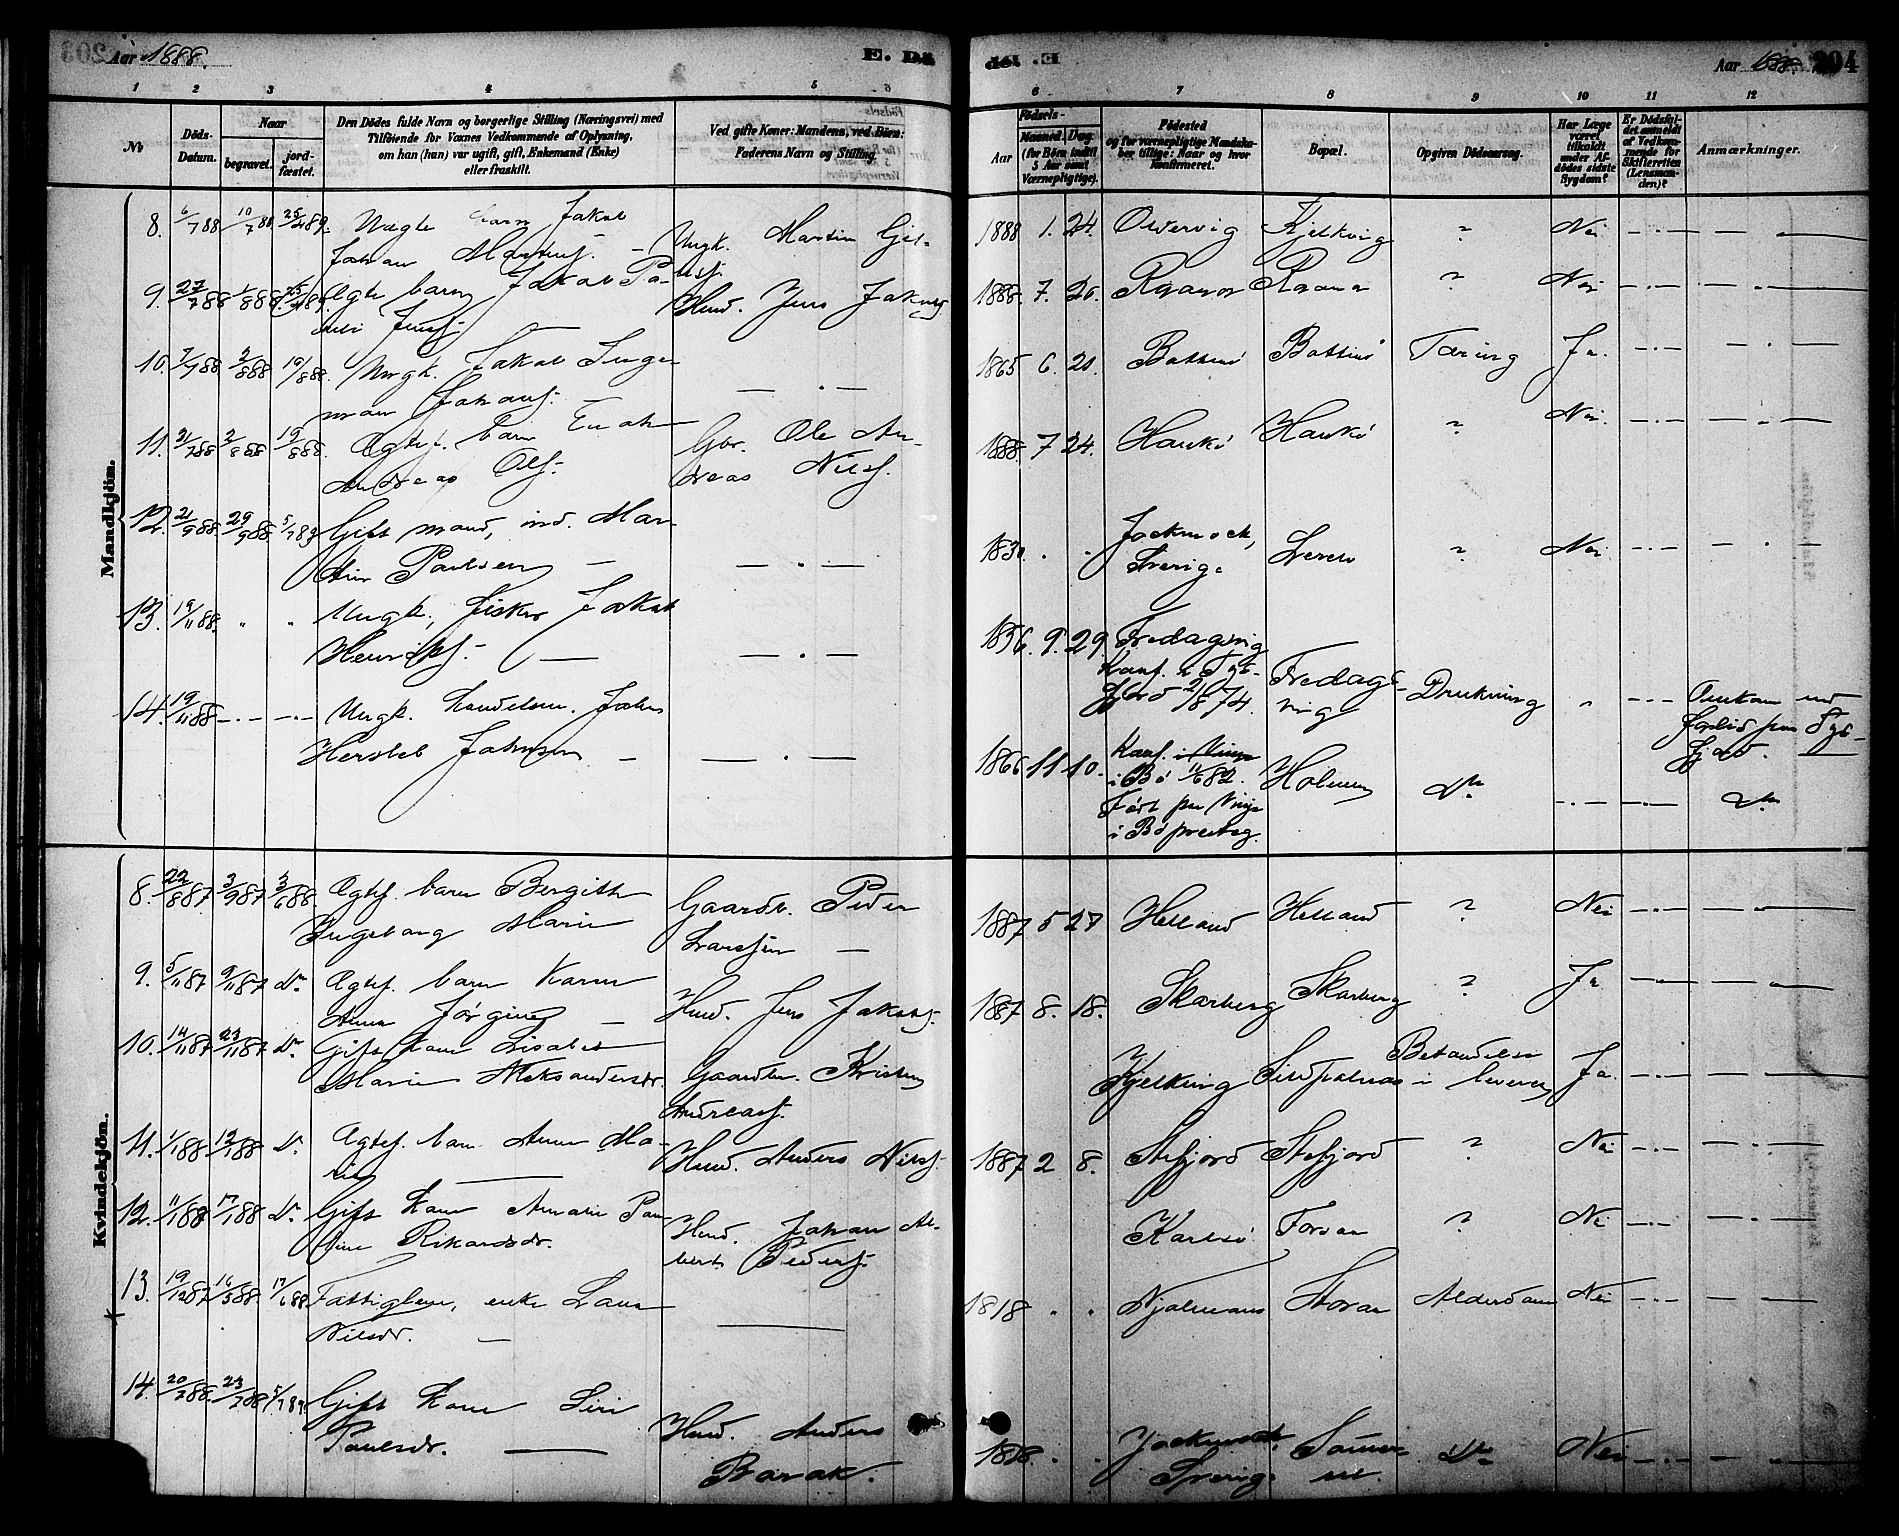 203
Aar 1888.
E. Dö
död. E.
Aar 1888. 204
1 2 3 4 5 6
6 7 8 9 10 11 12
No
Döds-Datum.
Naar
begravet.
jord-fæstet.
Den Dödes fulde Navn og borgerlige Stilling (Næringsvei) med
Tilföiende for Voxnes Vedkommende af Oplysning,
om han (hun) var ugift, gift, Enkemand (Enke)
eller fraskilt.
Ved gifte Koner: Mandens, ved Börn:
Faderens Navn og Stilling.
Födsels-
Aar
Maaned. Dag
(for Börn indtil
5 Aar samt
Værnepligtige).
Födested
og for værnepligtige Mandska-
ber tillige: Naar og hvor
konfirmeret.
Bopæl.
Opgiven Dödsaarsag.
Har Læge
været
tilkaldt
under Af-
dödes sidste
Sygdom?
Er Dödsfal-
det anmeldt
af Vedkom-
mende for
Skifteretten
(Lensman-
den)?
Anmærkninger.
Mandkjön.
8. 6/7 88 10/7 88 Uægte barn Jakob
Johan - Ungk. Martin
1888 1. 24. Kjelkvig ? Nei
9. 27/7 88 1/8 88 Ægte barn Jakob
Jensf. Husm. Jens Jakobsf.
1888. 7. 26. ? Nei
10. 7/7 88 2/8 88 19/8 88. Ungk. Jakob Inge-
man Johansf. -
1865 6. 20. Botten Tæring Ja.
11. 2/8 88 19/8 88. Ægtef. barn
Andreas Olsf. Gbr. Ole An-
dreas Nilsf.
1888. 7 24. ? Nei.
12. 21/9 88. 29/9 88 Gift mand, ind. Mar-
tin Paulsen -
1830 . . Jockmock,
Sverige ? Nei
13. 19/11 88. " " Ungk. fisker Jakob
Henriksf. -
1856. 9. 29. Fredagsvig
Konf. i Tys-
fjord 2/8 74. Fredags-
vig Drukning "
Omkom ved
forlis paa Tys-
fjord.
14. 19/11 88 Ungk. Johan
Hersleb Johnsen -
1866 11 10. Konf.
i Bö 11/6 82. Holmen Do
Födt paa
i Bö presteg. Do
Kvindekjön.
8. 22/8 87. 3/9 87 3/6 88 Ægtef. barn Bergitte
Ingeborg Marie Gaardb. Peder
Larssen -
1887 5 27 Helland Helland ? Nei
9. 5/11 87 9/11 87 Do. Ægtef. barn Karen
Anna Jörgine - Husm. Jens Jakobsf.
1887 8. 18. Skarberg Skarberg ? Ja
10. 14/11 87 23/11 87 Do. Gift kone Lisabet
Marie Aleksandersdr. Gaardbr. Kristen
Andreasf.
Kjelkvig Betændelse
i leveren Ja.
11. 1/1 88. 12/1 88 Do Ægtef. barn Anna Ma-
rie Husm. Anders Nilsf.
1887 2 8. Stefjord Stefjord ? Nei
12. 11/1 88 17/1 88 Do. Gift kone Amalie Pau-
line Rikardsdr. Husm. Johan Al-
bert Pedersf.
Karlsö Forsan ? Nei
13. 19/12 87 16/5 88. 17/6 88 Fattiglem, enke Lava
Nilsdr. -
1818 . . Storaa Alderdom Nei
14. 20/2 88. 23/2 88 Gift kone Siri
Paulsdr. Husm. Anders
Barak.
1818. . . Jockmock,
Sverige. Do Nei